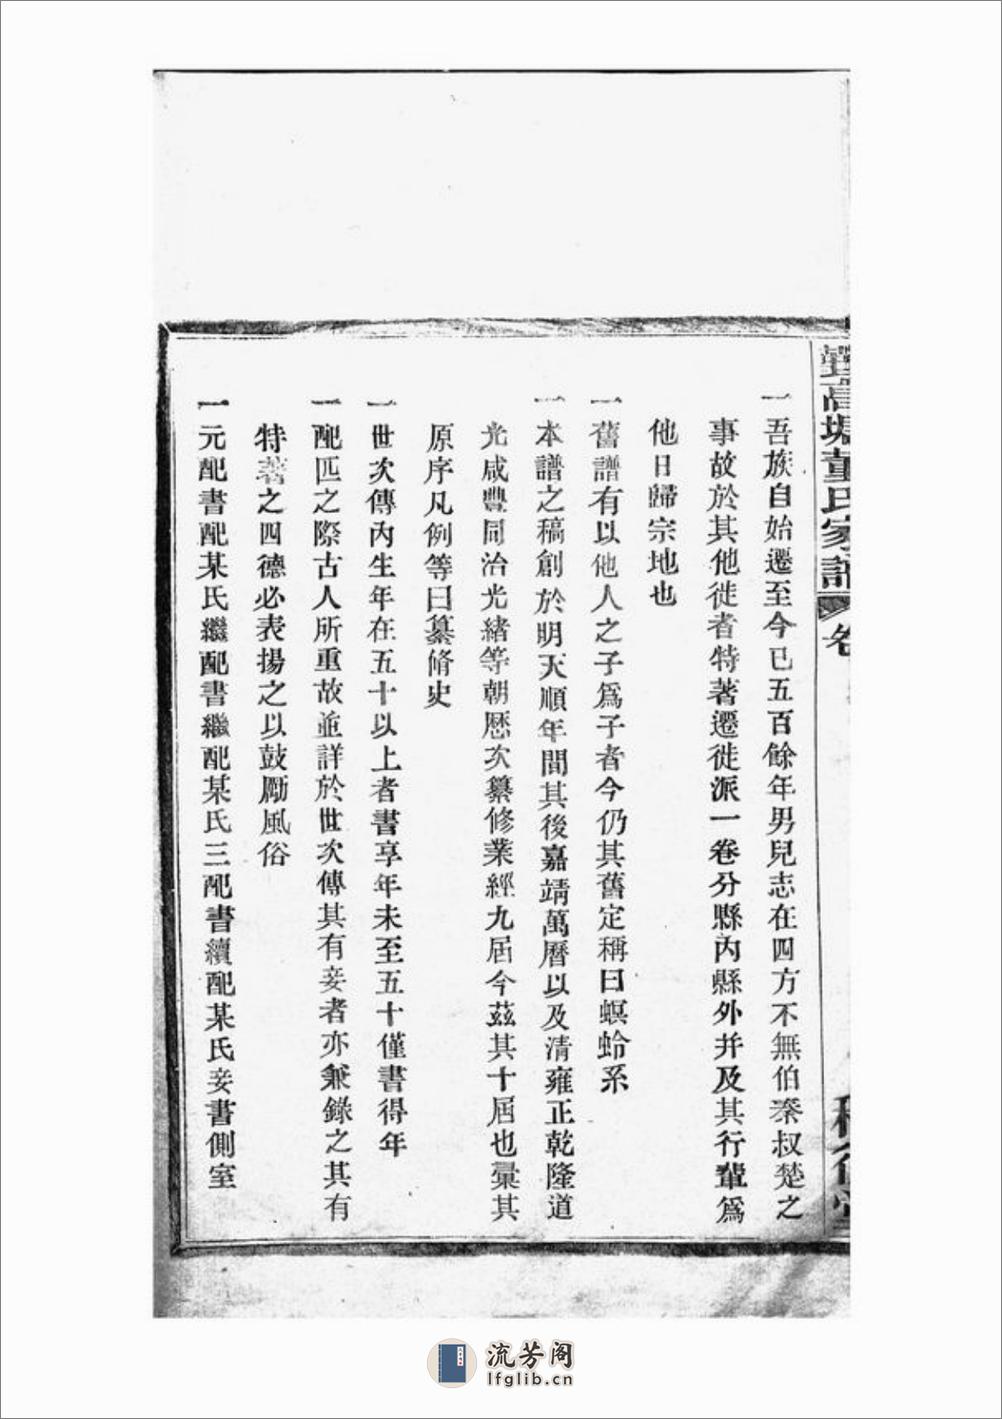 高塘董氏家譜
一吾族自始遷至今已五百餘年男兒志在四方不無伯秦叔楚之
事故於其他徙者特著遷徙派一卷分縣內縣外并及其行輩爲
他日歸宗地也
一舊譜有以他人之子爲子者今仍其舊定稱曰螟蛉系
一本譜之稿創於明天順年間其後嘉靖萬曆以及清雍正乾隆道
光咸豐同治光緒等朝歷次纂修業經九屆今茲其十屆也彙其
原序凡例等曰纂脩史
一世次傳內生年在五十以上者書享年未至五十僅書得年
一配匹之際古人所重故並詳於世次傳其有妾者亦兼錄之其有
特著之四德必表揚之以鼓勵風俗
一元配書配某氏繼配書繼配某氏三配書續配某氏妾書側室
流芳阁
lfglib.cn